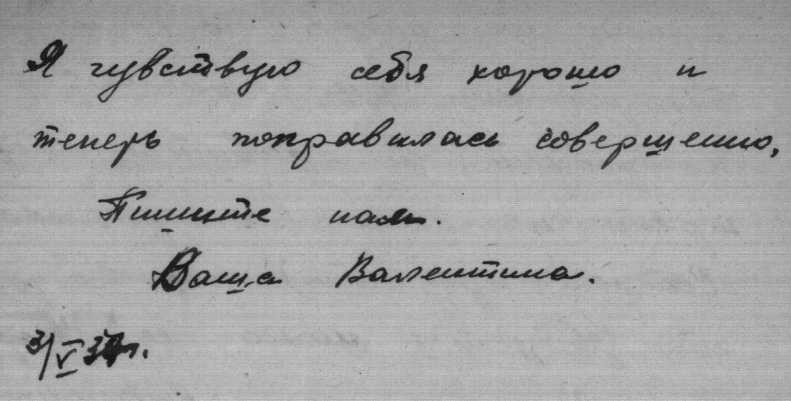 Я чувствую себя хорошо и
теперь поправилась совершенно,
Пишите нам.
Ваша Валентина.
3/V